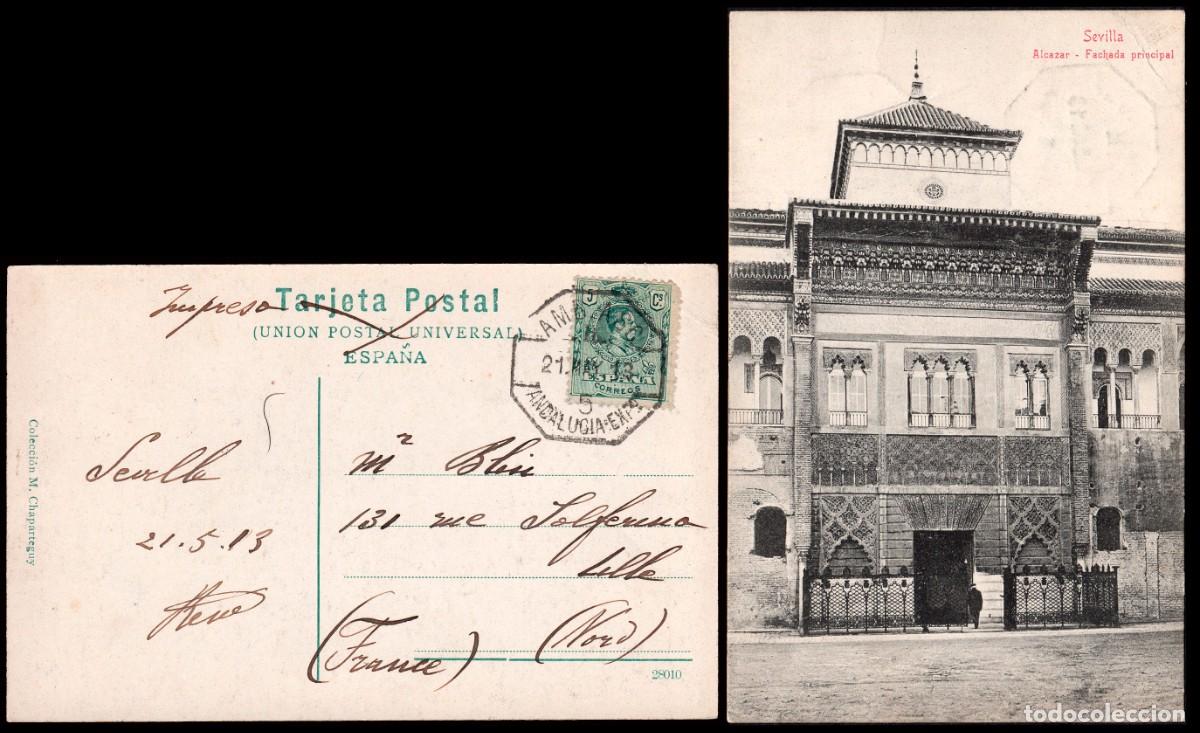 Impreso
Tarjeta Postal
(UNION POSTAL UNIVERSAL)
ESPAÑA
5 Cs
ESPAÑA
CORREOS
21.MAY.13
5
ANDALUCIA-EXP
Colección M. Chaparteguy
Seville
21.5.13
Mr Blin
131 rue Solferino
Lille
(Nord)
(France)
28010
Sevilla
Alcazar - Fachada principal
todocoleccion